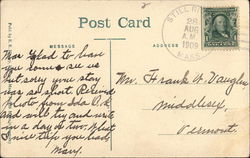 Post Card
STILL RI
MESSAGE
ADDRESS
28
AUG
AM
1909
MASS
Was Glad to have
you come so us
but sorry you stay
was so short Received
photo from Ida O.K.
and will try and write
in a day or two, What
a nice trip you had.
Mary.
Mr. Frank W. Vaughn
Middlesex,
Vermont.